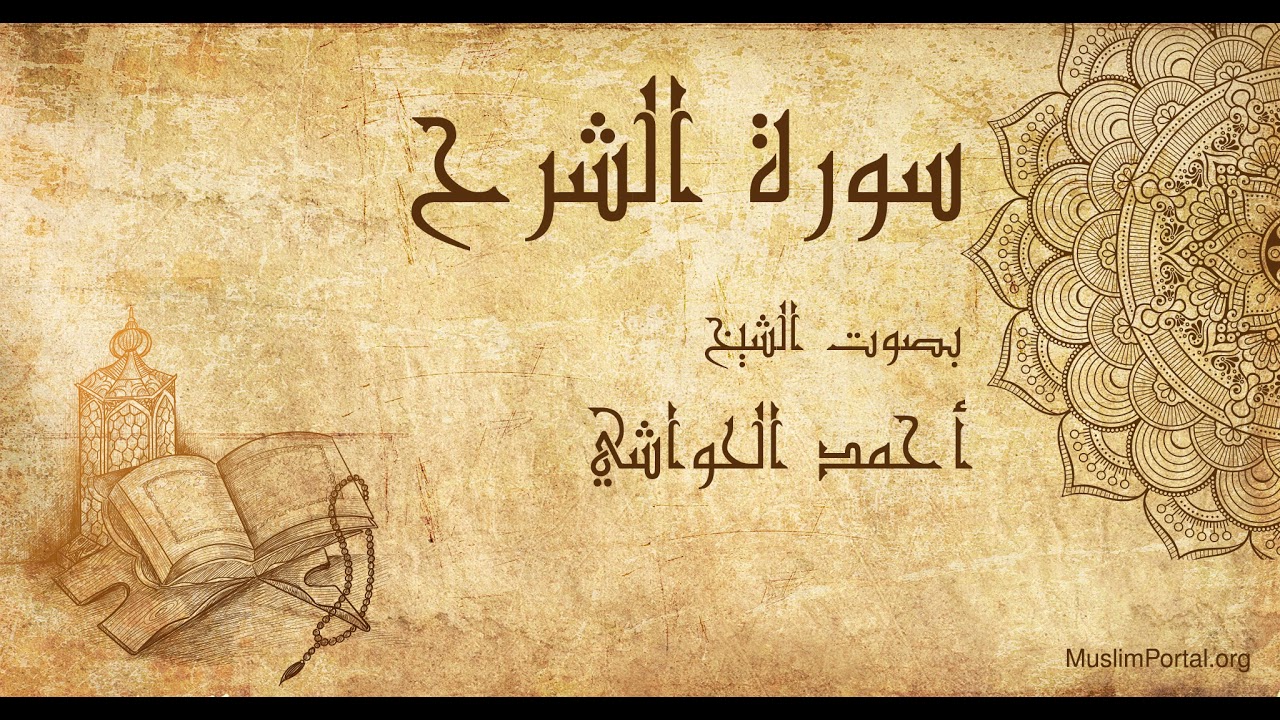 سورة الشرح
بصوت الشيخ
أحمد الحواشي
MuslimPortal.org